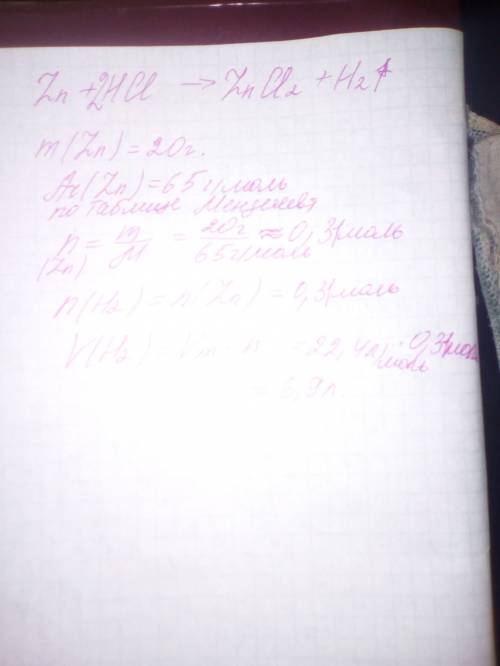 Zn + 2HCl → ZnCl₂ + H₂↑
m(Zn) = 20г.
Ar(Zn) = 65 г/моль
по таблице Менделеева
n(Zn) = m/M = 20г/65г/моль ≈ 0,31моль
n(H₂) = n(Zn) = 0,31моль
V(H₂) = Vm · n = 22,4л/моль · 0,31моль
= 6,9л.